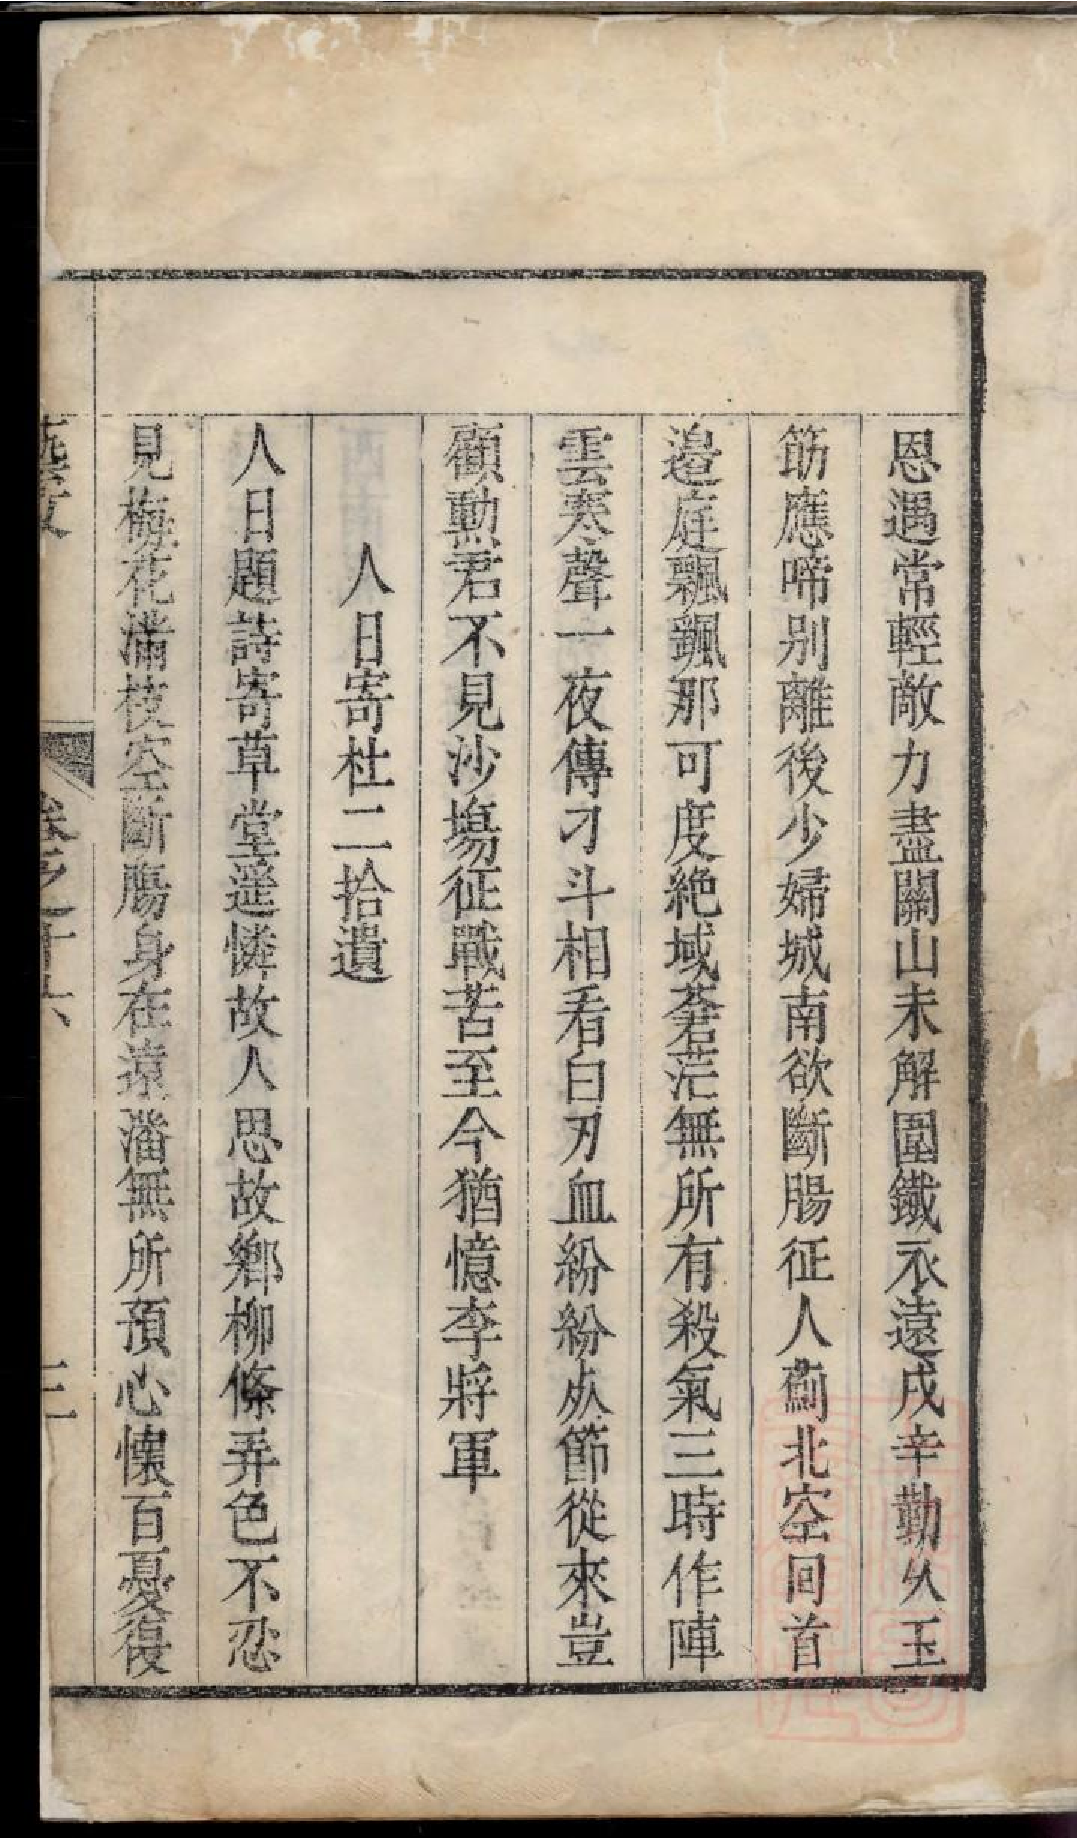 恩遇常輕敵力盡關山未解圍鐵衣遠戍辛勤乆玉
筯應啼别離後少婦城南欲斷腸征人薊北空囘首
邉庭飄颻那可度絶域蒼茫無所有殺氣三時作陣
雲寒聲一夜傳刁斗相看白刃血紛紛𣦸節從來豈
顧勲君不見沙塲征戰苦至今猶憶李將軍
人日寄杜二拾遺
人日題詩寄草堂遥憐故人思故鄉柳條弄色不忍
見梅花滿枝空斷膓身在遠潘無所預心懐百憂復
藝文
卷之十六
三